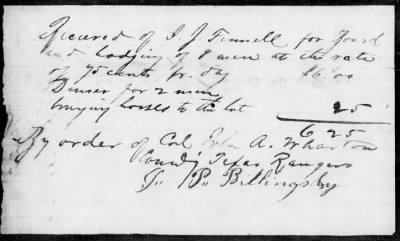 Received of I. J. Finnell for Board
and Lodging of 8 men at the rate
of 75 cents pr. day $6.00
Dinner for 2 men
bringing horses to the lot 25
6 25
By order of Col John A. Wharton
Comdg Texas Rangers
J. P. Billingsby